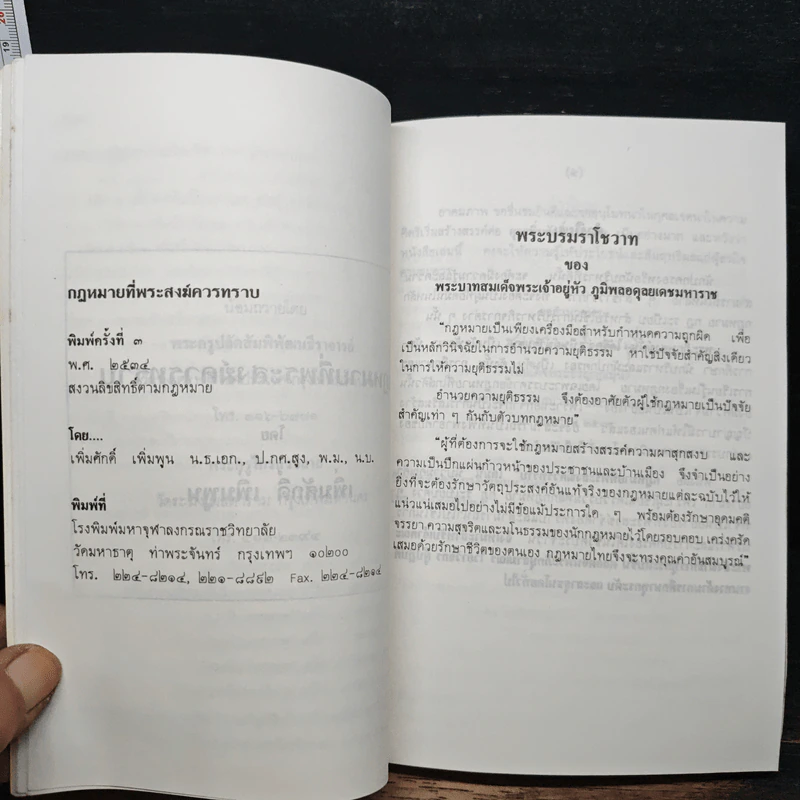 กฎหมายที่พระสงฆ์ควรทราบ
พิมพ์ครั้งที่ ๓
พ.ศ. ๒๕๓๔
สงวนลิขสิทธิ์ตามกฎหมาย
โดย....
เพิ่มศักดิ์ เพิ่มพูน น.ธ.เอก., ป.กศ.สูง, พ.ม., น.บ.
พิมพ์ที่
โรงพิมพ์มหาจุฬาลงกรณราชวิทยาลัย
วัดมหาธาตุ ท่าพระจันทร์ กรุงเทพฯ ๑๐๒๐๐
โทร. ๒๒๔-๘๒๑๔, ๒๒๑-๘๘๙๒ Fax. ๒๒๔-๘๒๑๔
พระบรมราโชวาท
ของ
พระบาทสมเด็จพระเจ้าอยู่หัว ภูมิพลอดุลยเดชมหาราช
"กฎหมายเป็นเพียงเครื่องมือสำหรับกำหนดความถูกผิด เพื่อ
เป็นหลักวินิจฉัยในการอำนวยความยุติธรรม หาใช่ปัจจัยสำคัญสิ่งเดียว
ในการให้ความยุติธรรมไม่
อำนวยความยุติธรรม จึงต้องอาศัยตัวผู้ใช้กฎหมายเป็นปัจจัย
สำคัญเท่า ๆ กันกับตัวบทกฎหมาย"
"ผู้ที่ต้องการจะใช้กฎหมายสร้างสรรค์ความผาสุกสงบ และ
ความเป็นปึกแผ่นก้าวหน้าของประชาชนและบ้านเมือง จึงจำเป็นอย่าง
ยิ่งที่จะต้องรักษาวัตถุประสงค์อันแท้จริงของกฎหมายแต่ละฉบับไว้ให้
แน่วแน่เสมอไปอย่างไม่มีข้อแม้ประการใด ๆ พร้อมต้องรักษาอุดมคติ
จรรยา ความสุจริตและมโนธรรมของนักกฎหมายไว้โดยรอบคอบ เคร่งครัด
เสมอด้วยรักษาชีวิตของตนเอง กฎหมายไทยจึงจะทรงคุณค่าอันสมบูรณ์"